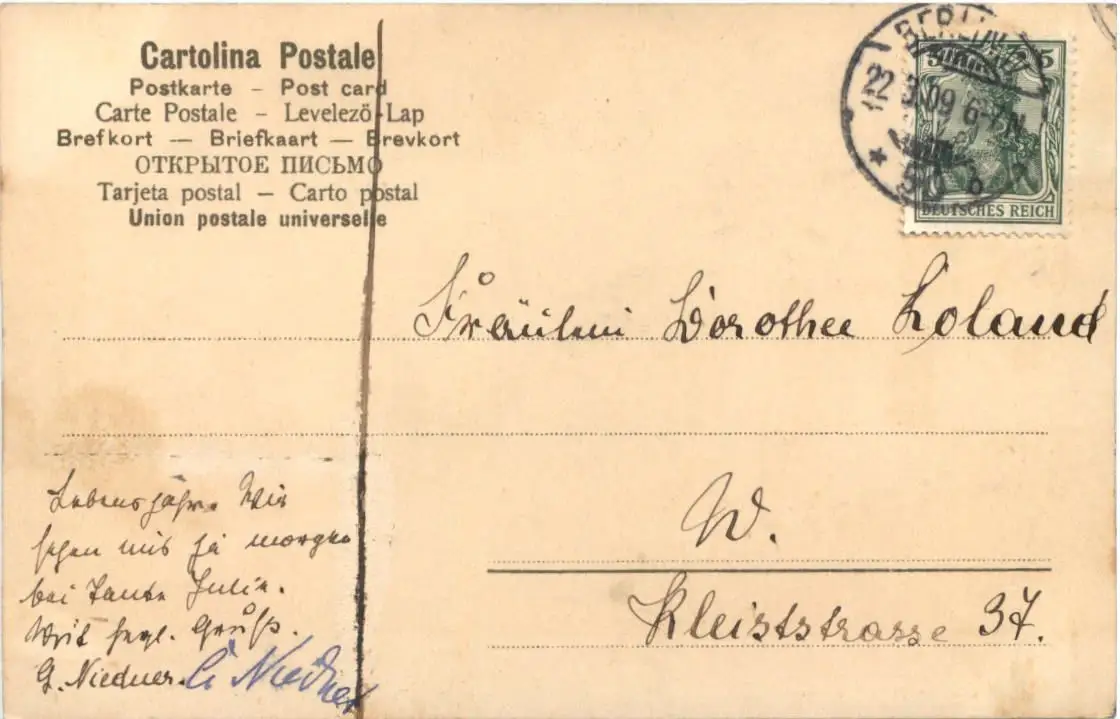 Cartolina Postale
Postkarte – Post card
Carte Postale – Levelező-Lap
Brefkort — Briefkaart — Brevkort
ОТКРЫТОЕ ПИСЬМО
Tarjeta postal – Carto postal
Union postale universelle
BERLIN
22.3.09 6-7N
50
5 5
DEUTSCHES REICH
Fräulein Dorothee Roland
W.
Kleiststrasse 37.
Lebensjahr. Wir
sehen uns ja morgen
bei Tante Julie.
Mit hrzl. Gruß.
G. Niedner. G Niedner